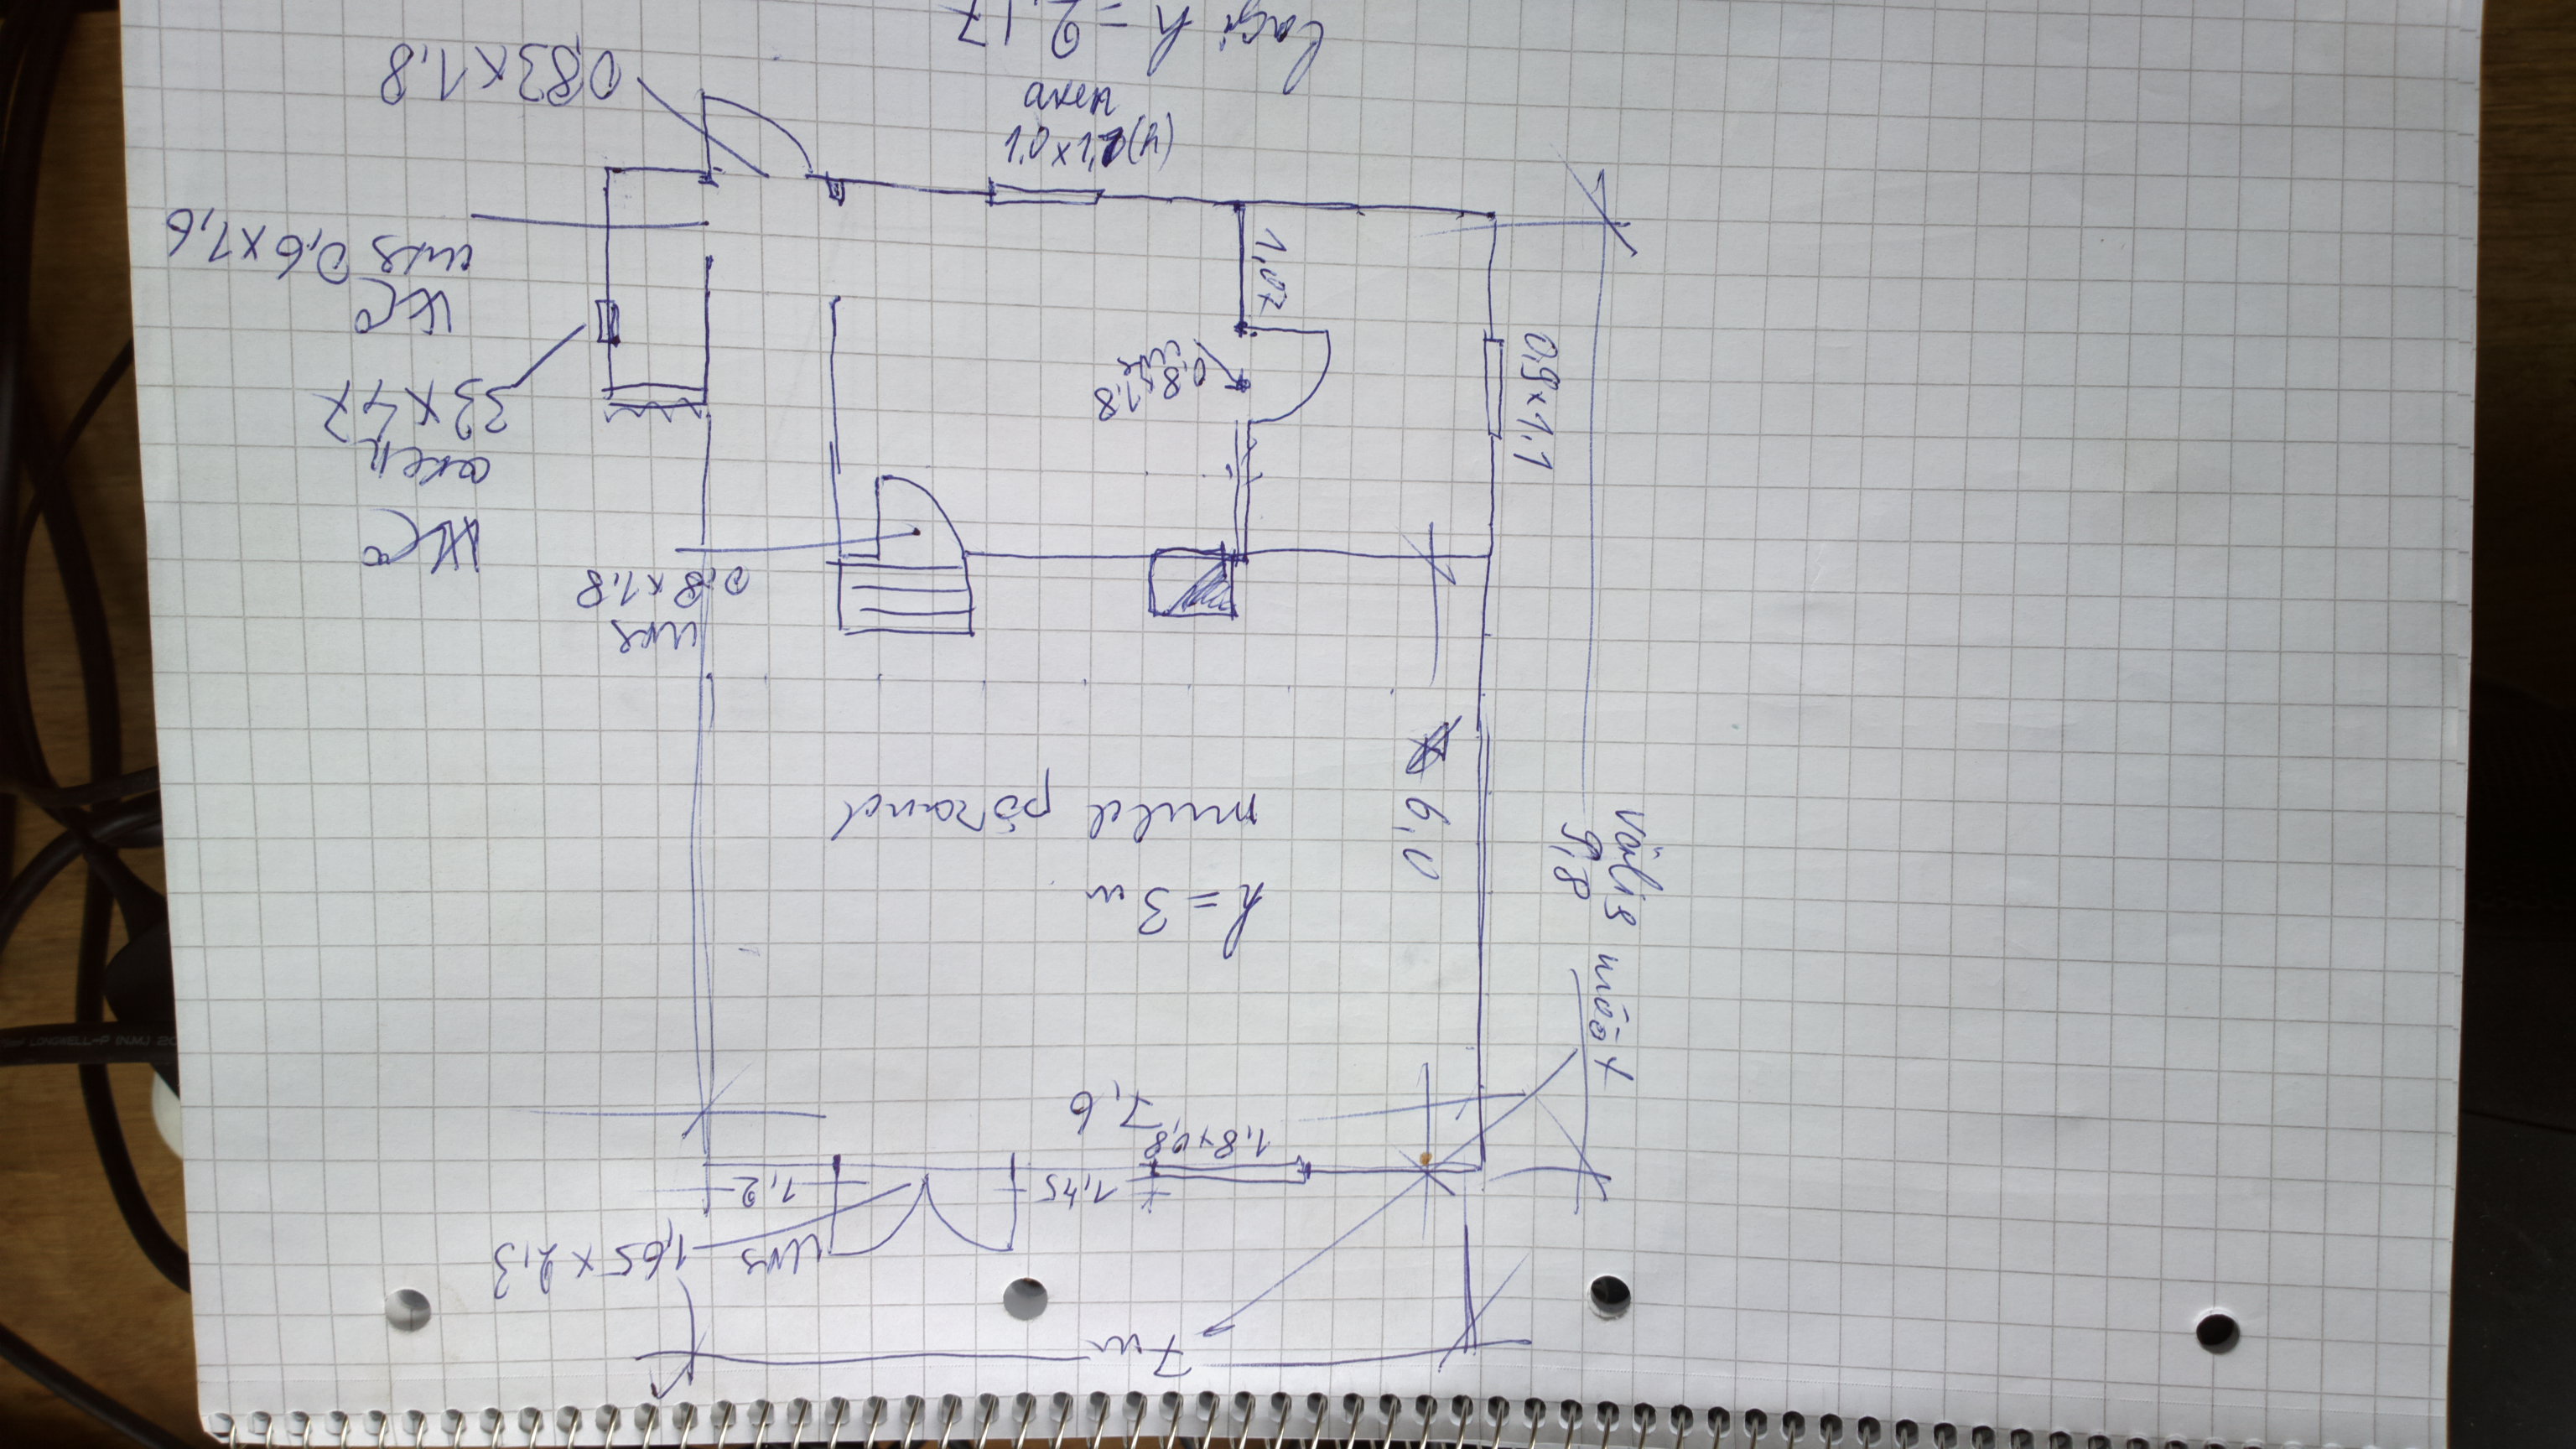 lagi h = 2,17
aken
1,0 x 1,1 (h)
0,83 x 1,8
uks 0,6 x 1,6
WC
33 x 47
aken
WC
1,07
0,8 x 1,8
uks
0,9 x 1,1
uks
0,8 x 1,8
6,0
muld põrand
h = 3 m
Välis mõõt
9,8
7,6
1,8 x 0,8
1,45
1,2
uks
1,65 x 2,3
7 m
LONGWELL-P (N.M.)